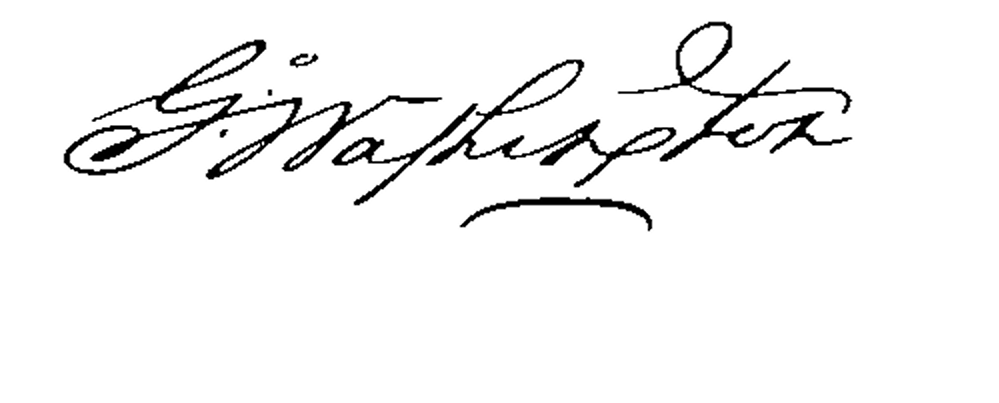 G. Washington